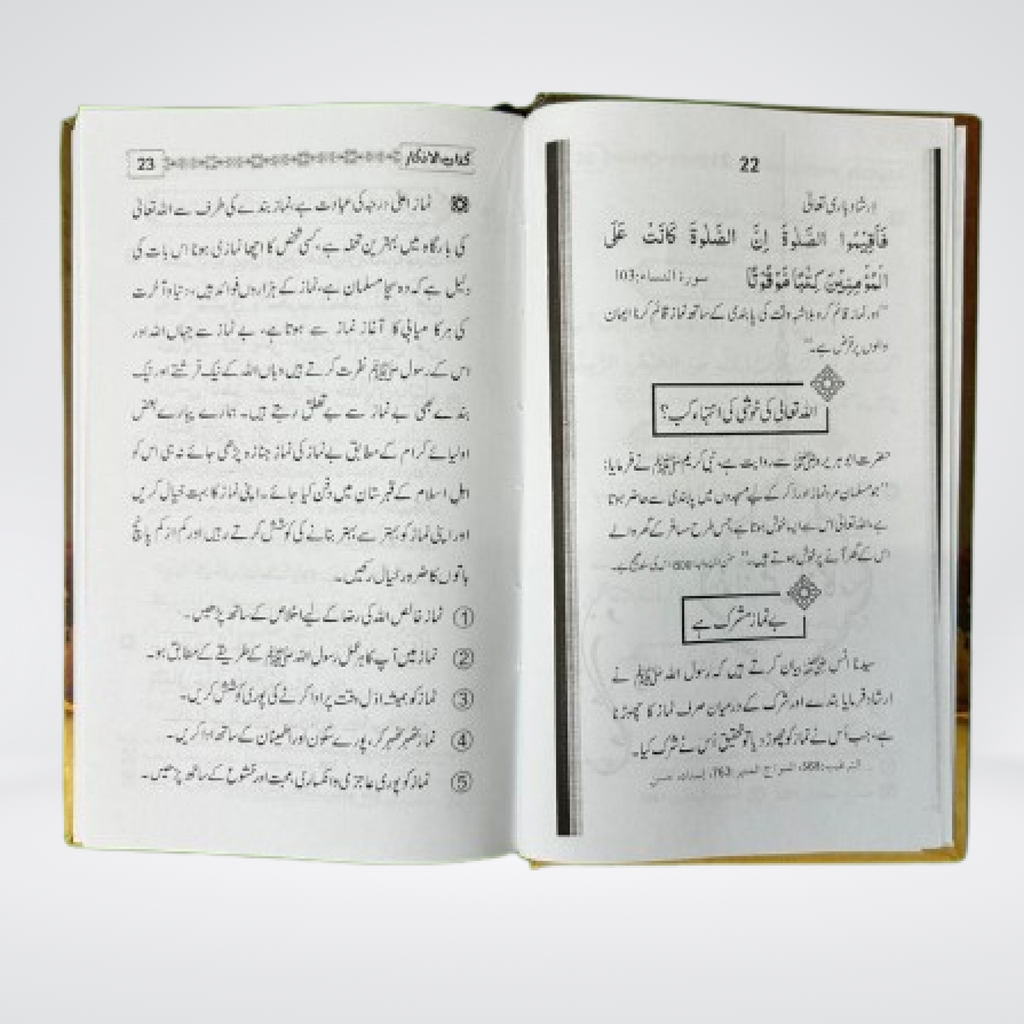 22
ارشاد باری تعالیٰ
فَأَقِيمُوا الصَّلٰوةَ إِنَّ الصَّلٰوةَ كَانَتْ عَلَى
الْمُؤْمِنِينَ كِتٰبًا مَّوْقُوتًا سورة النساء:103
"اور نماز قائم کرو بلاشبہ وقت کی پابندی کے ساتھ نماز قائم کرنا ایمان
والوں پر فرض ہے۔"
اللہ تعالیٰ کی خوشی کی انتہاء کب؟
حضرت ابو ہریرہ رضی اللہ عنہ سے روایت ہے، نبی کریم ﷺ نے فرمایا:
"جو مسلمان مرد نماز اور ذکر کے لیے مسجدوں میں پابندی سے حاضر ہوتا
ہے، اللہ تعالیٰ اس سے ایسے خوش ہوتا ہے جس طرح مسافر کے گھر والے
اس کے گھر آنے پر خوش ہوتے ہیں۔" سنن ابن ماجہ: 800 اس کی سند صحیح ہے۔
بے نماز مشرک ہے
سیدنا انس رضی اللہ عنہ بیان کرتے ہیں کہ رسول اللہ ﷺ نے
ارشاد فرمایا بندے اور شرک کے درمیان صرف نماز کا چھوڑنا
ہے، جب اُس نے نماز کو چھوڑ دیا تو تحقیق اُس نے شرک کیا۔
الترغیب:568، السراج المنیر:763، إسناده حسن
کتاب الاذکار 23
نماز اعلیٰ درجہ کی عبادت ہے، نماز بندے کی طرف سے اللہ تعالیٰ
کی بارگاہ میں بہترین تحفہ ہے، کسی شخص کا اچھا نمازی ہونا اس بات کی
دلیل ہے کہ وہ سچا مسلمان ہے، نماز کے ہزاروں فوائد ہیں، دنیا و آخرت
کی ہر کامیابی کا آغاز نماز سے ہوتا ہے، بے نماز سے جہاں اللہ اور
اس کے رسول ﷺ نفرت کرتے ہیں وہاں اللہ کے نیک فرشتے اور نیک
بندے بھی بے نماز سے بے تعلق رہتے ہیں۔ ہمارے پیارے بعض
اولیائے کرام کے مطابق بے نماز کی نماز جنازہ پڑھی جائے نہ ہی اس کو
اہل اسلام کے قبرستان میں دفن کیا جائے۔ اپنی نماز کا بہت خیال کریں
اور اپنی نماز کو بہتر سے بہتر بنانے کی کوشش کرتے رہیں اور کم از کم پانچ
باتوں کا ضرور خیال رکھیں۔
① نماز خالص اللہ کی رضا کے لیے اخلاص کے ساتھ پڑھیں۔
② نماز میں آپ کا ہر عمل رسول اللہ ﷺ کے طریقے کے مطابق ہو۔
③ نماز کو ہمیشہ اوّل وقت پر ادا کرنے کی پوری کوشش کریں۔
④ نماز ٹھہر ٹھہر کر، پورے سکون اور اطمینان کے ساتھ ادا کریں۔
⑤ نماز کو پوری عاجزی و انکساری، محبت اور خشوع کے ساتھ پڑھیں۔